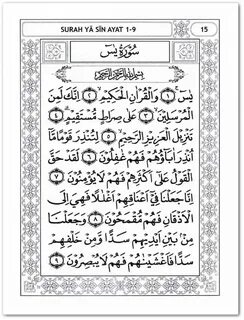 SURAH YĀ SĪN AYAT 1-9
15
سُورَةُ يٰسٓ
بِسْمِ اللّٰهِ الرَّحْمٰنِ الرَّحِيْمِ
يٰسٓ ﴿١﴾ وَالْقُرْاٰنِ الْحَكِيْمِ ﴿٢﴾ اِنَّكَ لَمِنَ
الْمُرْسَلِيْنَ ﴿٣﴾ عَلٰى صِرَاطٍ مُّسْتَقِيْمٍ ﴿٤﴾
تَنْزِيْلَ الْعَزِيْزِ الرَّحِيْمِ ﴿٥﴾ لِتُنْذِرَ قَوْمًا مَّا
اُنْذِرَ اٰبَاؤُهُمْ فَهُمْ غٰفِلُوْنَ ﴿٦﴾ لَقَدْ حَقَّ
الْقَوْلُ عَلٰى اَكْثَرِهِمْ فَهُمْ لَا يُؤْمِنُوْنَ ﴿٧﴾
اِنَّا جَعَلْنَا فِيْ اَعْنَاقِهِمْ اَغْلٰلًا فَهِيَ اِلَى
الْاَذْقَانِ فَهُمْ مُّقْمَحُوْنَ ﴿٨﴾ وَجَعَلْنَا
مِنْۢ بَيْنِ اَيْدِيْهِمْ سَدًّا وَّمِنْ خَلْفِهِمْ
سَدًّا فَاَغْشَيْنٰهُمْ فَهُمْ لَا يُبْصِرُوْنَ ﴿٩﴾